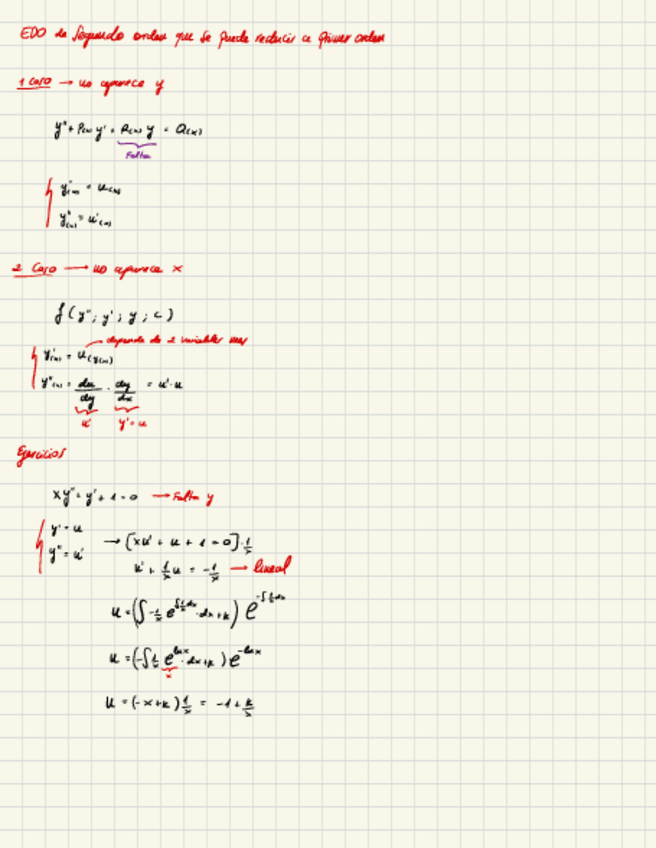 EDO de Segundo orden que se puede reducir a primer orden
1 caso → no aparece y
y'' + P(x) y' + R(x) y = Q(x)
Falta
y'(x) = u(x)
y''(x) = u'(x)
2 Caso → no aparece x
f(y''; y'; y; c)
depende de 2 variables
y'(x) = u(y(x))
y''(x) = du/dy · dy/dx = u'·u
u' y'=u
Ejercicios
xy'' + y' + 1 = 0 → Falta y
y' = u
y'' = u'
→ [xu' + u + 1 = 0] · 1/x
u' + 1/x u = -1/x → lineal
u = (∫ -1/x e^(∫1/x dx) · dx + k) e^(-∫1/x dx)
u = (-∫ 1/x e^(ln x) · dx + k) e^(-ln x)
x
u = (-x + k) 1/x = -1 + k/x